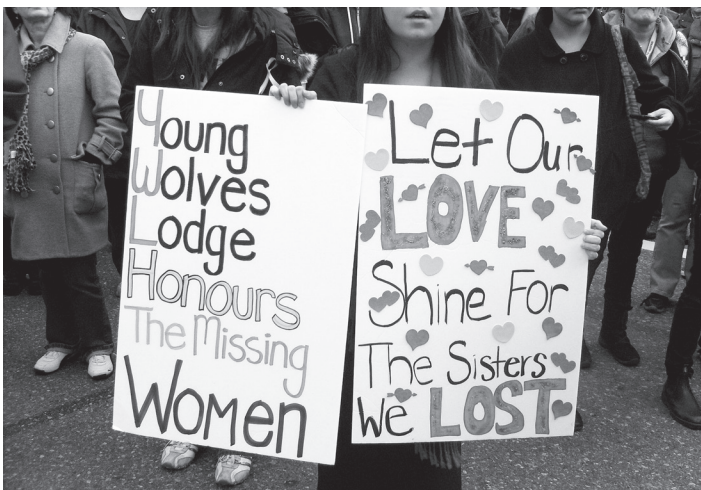 Young
Wolves
Lodge
Honours
The Missing
Women
Let Our
LOVE
Shine For
The Sisters
We LOST